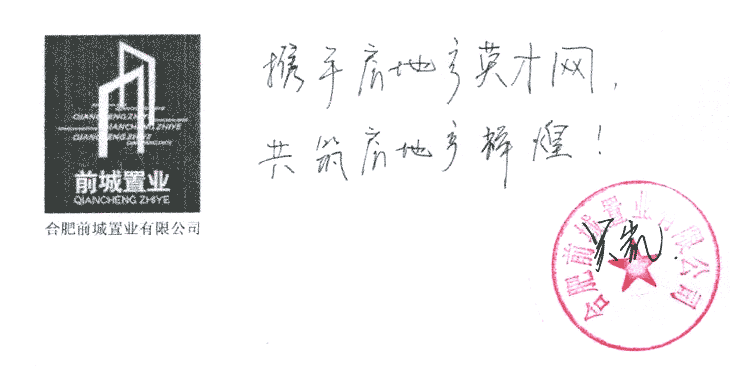 携手房地产英才网，
共筑房地产辉煌！
QIANCHENG ZHIYE
QIANCHENG ZHIYE
QIANCHENG ZHIYE
前城置业
QIANCHENG ZHIYE
合肥前城置业有限公司
合肥前城置业有限公司